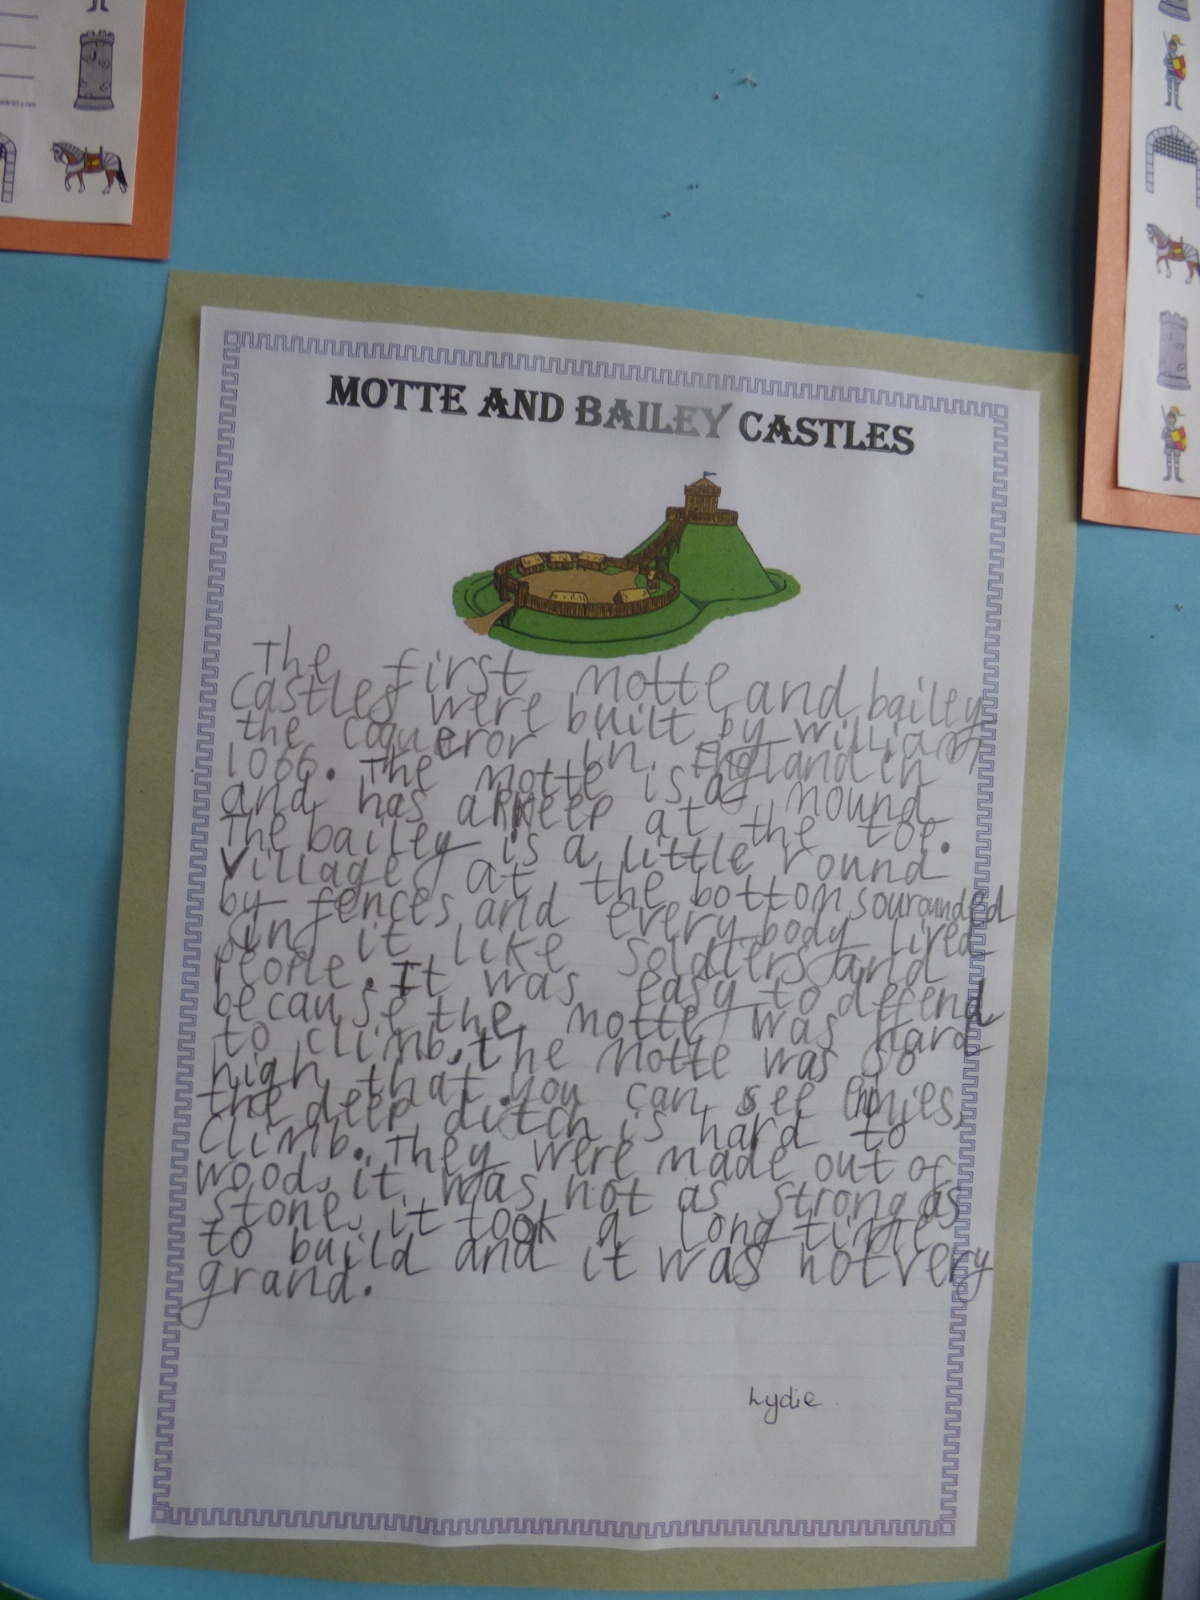 MOTTE AND BAILEY CASTLES
The first motte and bailey
castles were built by William
the Coqueror in England in
1066. The motte is a mound
and has a keep at the toe.
The bailey is a little round
village at the bottom sourounded
by fences and every body lived
in it like soldiers and
people. It was easy to defend
because the motte was hard
to climb, the motte was so
high that you can see enmies,
the deep ditch is hard to
climb. They were made out of
wood, it was not as strong as
stone, it took a long time
to build and it was not very
grand.
Lydie